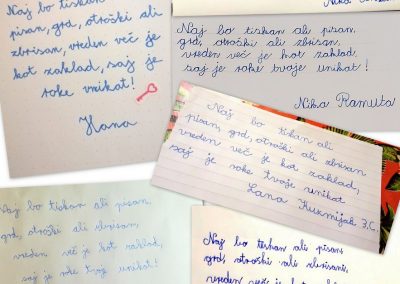 Naj bo tiskan ali
pisan, grd, otroški ali
zbrisan, vreden več je
kot zaklad, saj je
roke unikat!
Hana
Nika
Naj bo tiskan ali pisan,
grd, otroški ali zbrisan,
vreden več je kot zaklad,
saj je roke tvoje unikat!
Nika Ramuta
Naj bo tikan ali
pisan, grd, otroški ali zbrisan
vreden več je kot zaklad,
saj je roke tvoje unikat
Lana Kuzmijak 7.C.
Naj bo tiskan ali pisan,
grd, otroški ali zbrisan,
vreden več je kot zaklad,
saj je roke tvoj unikat!
Naj bo tiskan ali pisan,
grd, otroški ali zbrisani,
vreden več je kot zaklad,